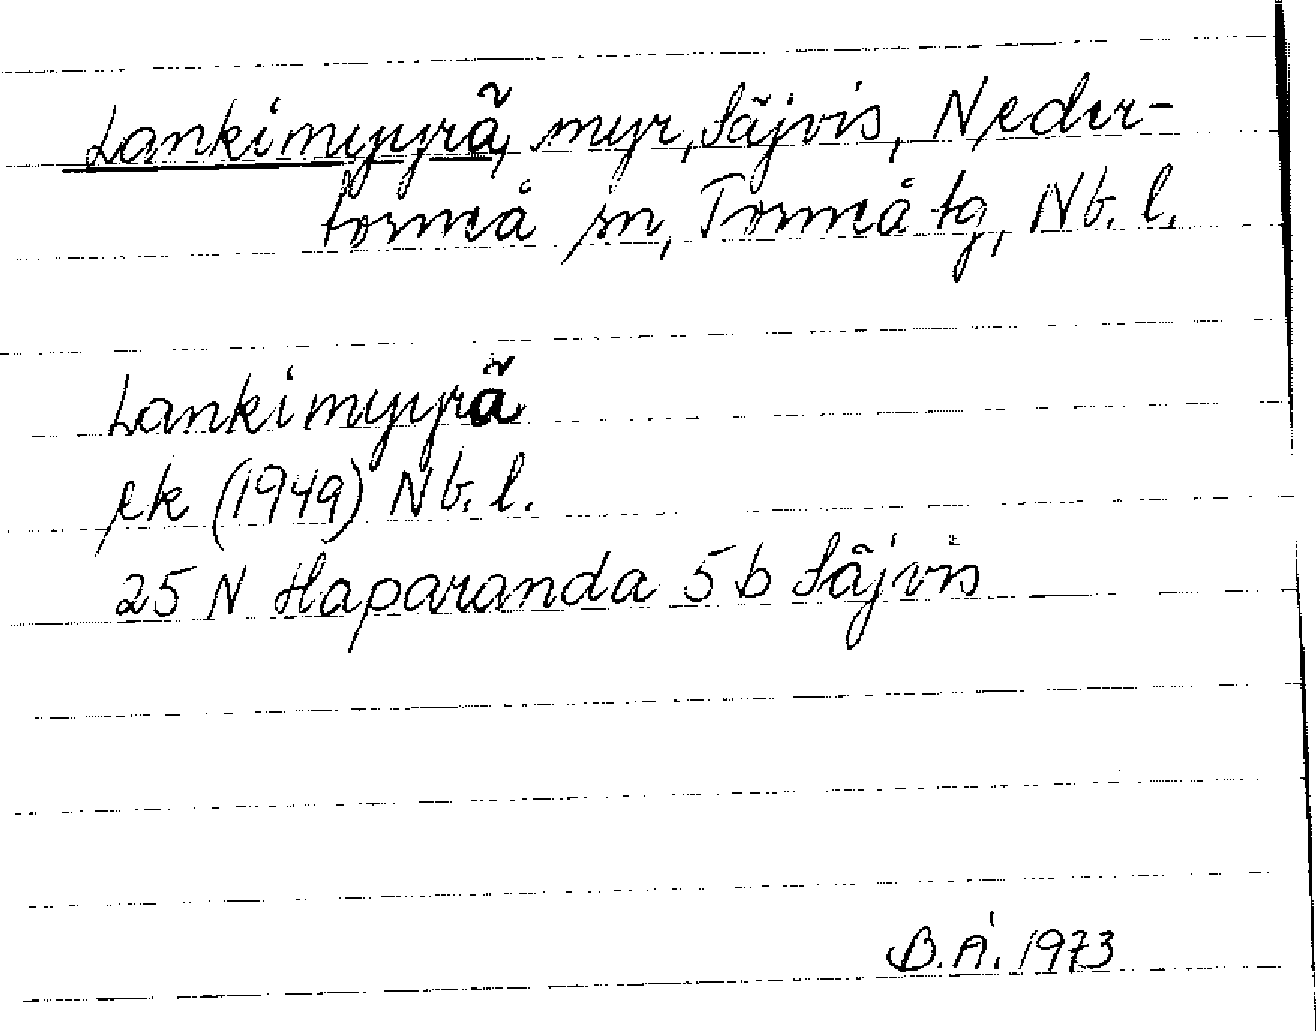 Lankimyyrä, myr, Säjvis, Neder-
torneå sn, Torneå tg, Nb. l.
Lankimyyrä
ek (1949) Nb. l.
25 N Haparanda 5 b Säjvis
B. Å. 1973